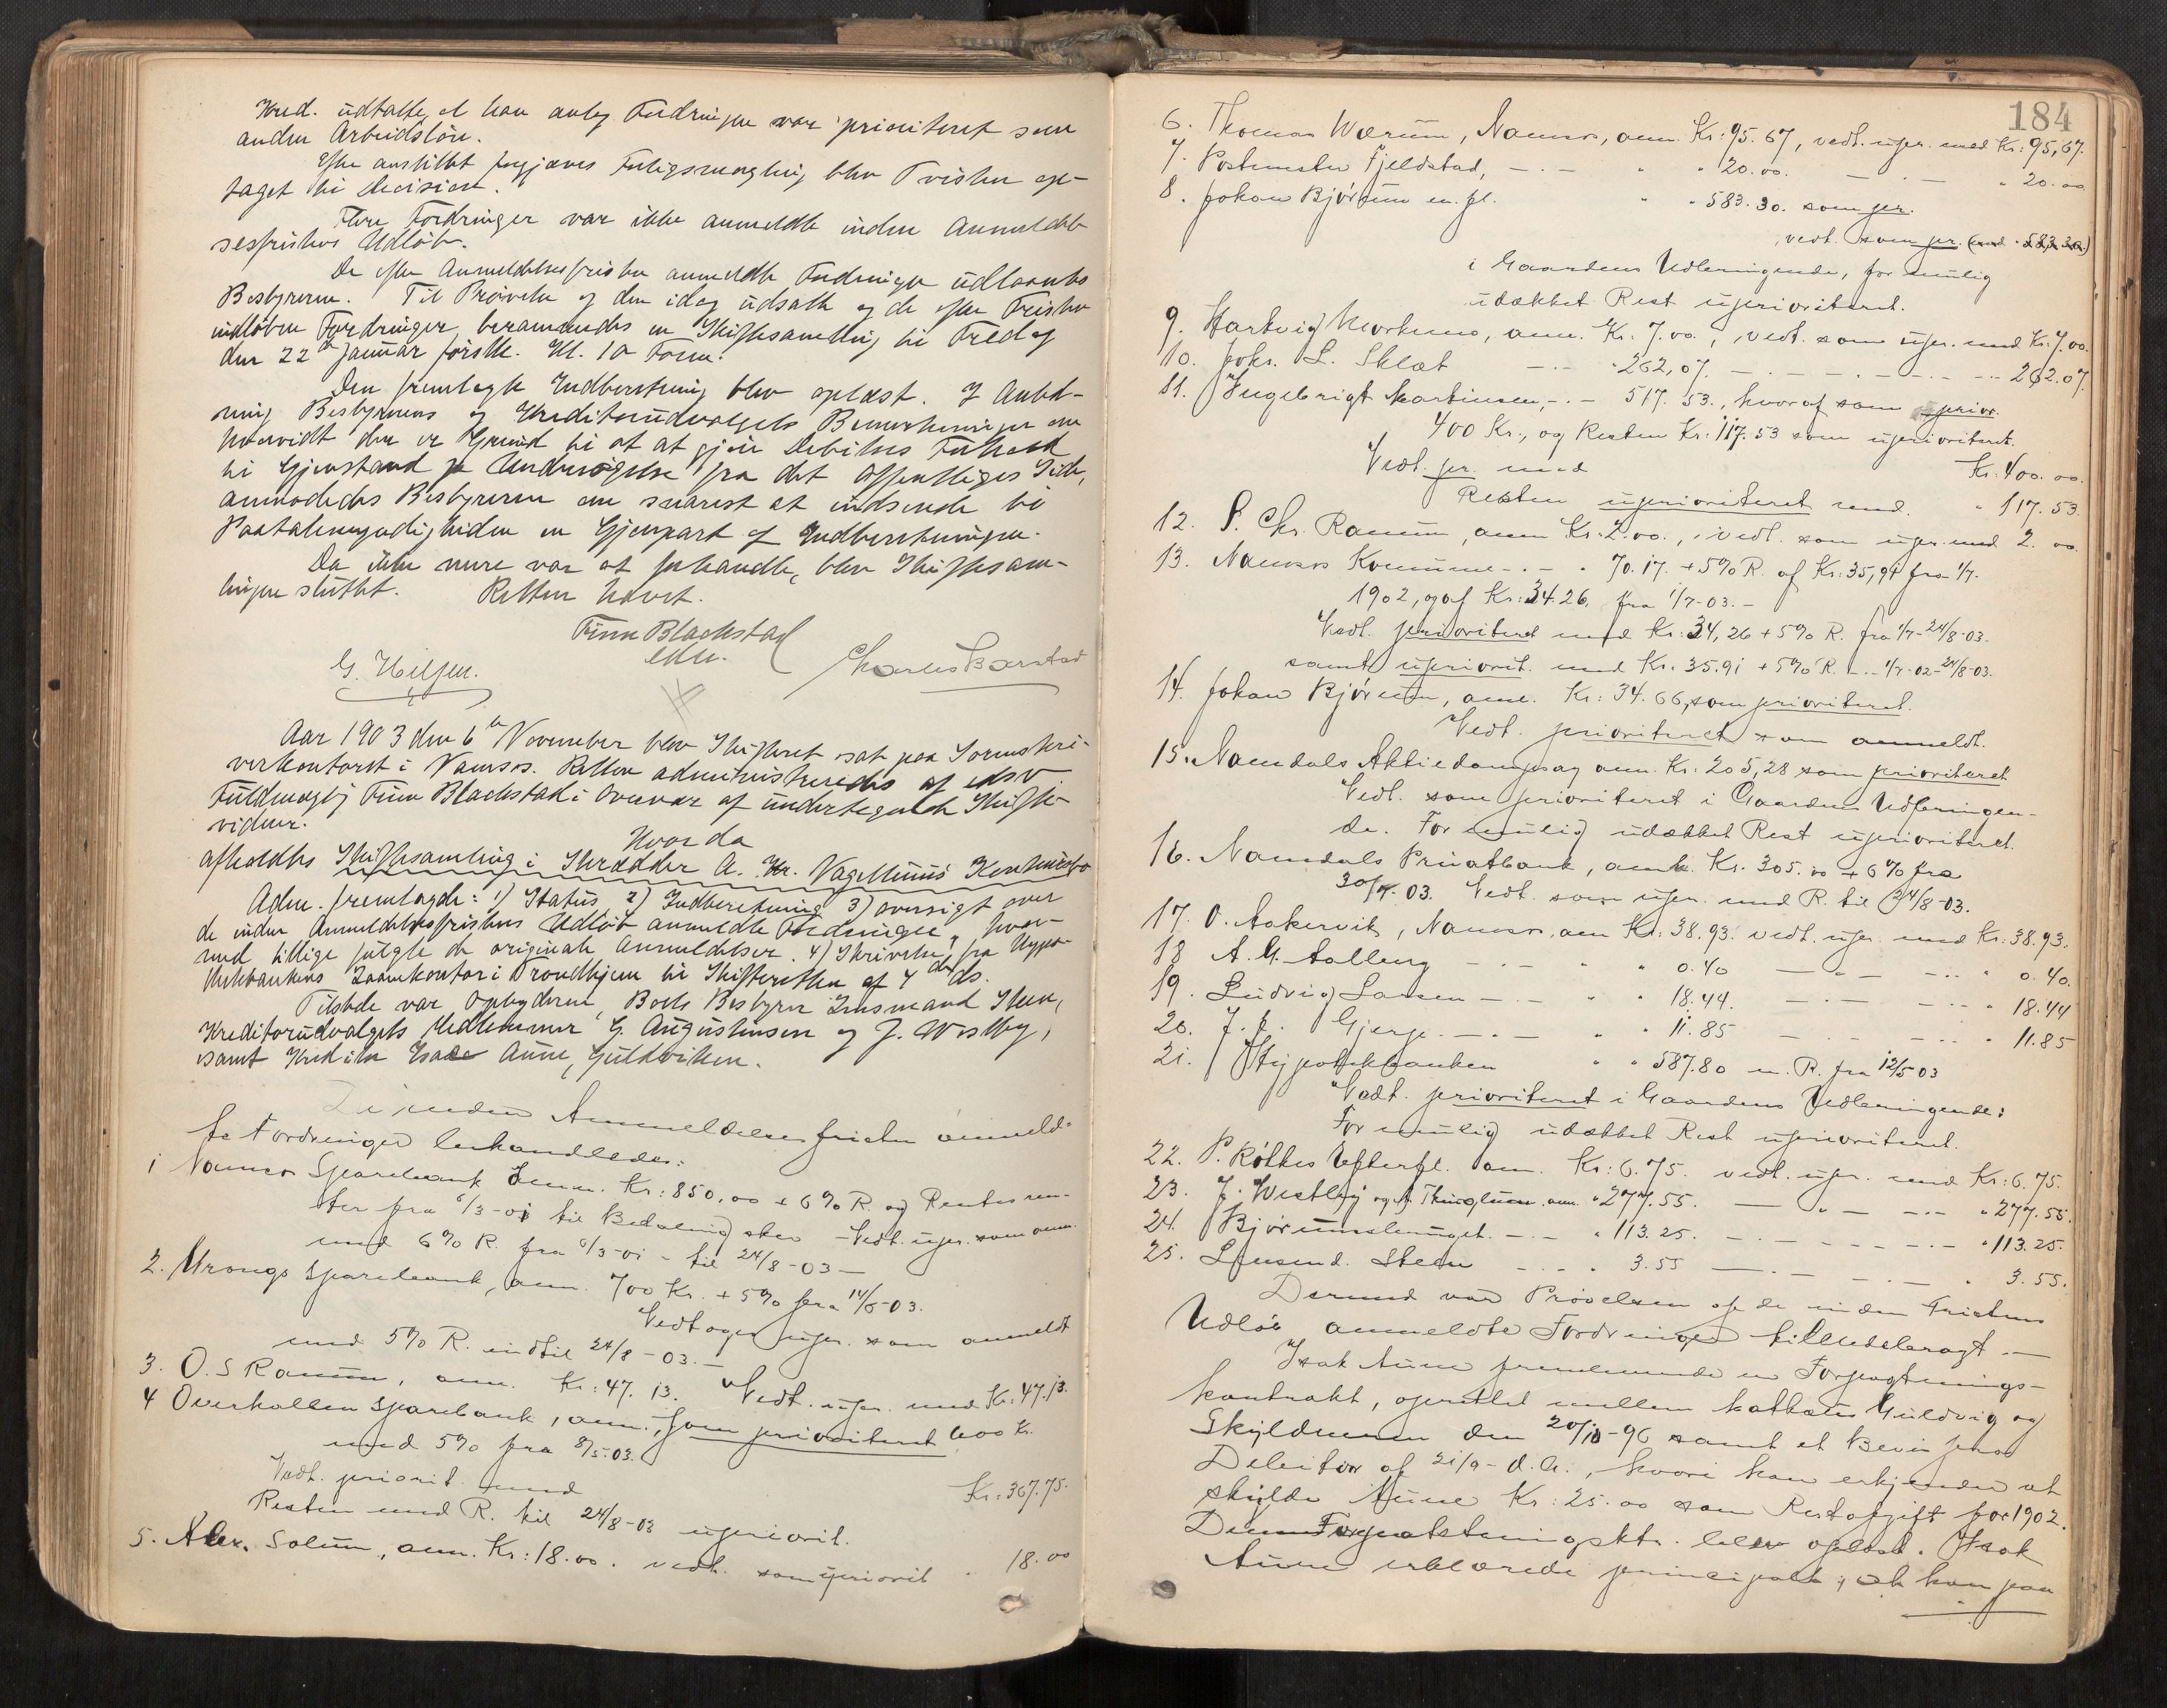 Kred. udtalte, at han antog Fordringen var prioriteret som
anden Arbeidsløn.
Efter anstillet forgjæves Forligsmægling blev Tvisten op-
taget til Decision.
Flere Fordringer var ikke anmeldte inden Anmeldel-
sesfristens Udløb.
De efter Anmeldelsesfristen anmeldte Fordringer udlaantes
Bestyreren. Til Prøvelse af den idag udsatte og de efter Fristen
indløbne Fordringer, berammedes en Skiftesamling til Fredag
den 22de Januar førstk. Kl. 10 Form.
Den fremlagte Indberetning blev oplæst. I Anled-
ning Bestyrerens og Kreditorudvalgets Bemerkninger om
hvorvidt der er Grund til at gjøre Debitors Forhold
til Gjenstand for Undersøgelse fra det Offentliges Side,
anmodedes Bestyreren om snarest at indsende til
Paatalemyndigheden en Gjenpart af Indberetningen.
Da ikke mere var at forhandle, blev Skiftesam-
lingen sluttet. Retten hævet.
Finn Blackstad
edsv.
G. Hiljen. Charles Barstad
Aar 1903 den 6te November blev Skifteret sat paa Sorenskri-
verkontoret i Namsos. Retten administreredes af edsv.
Fuldmægtig Finn Blackstad i Overvær af undertegnede Skifte-
vidner.
Hvorda
afholdtes Skiftesamling i Skrædder A. Kr. Vagellunds Konkursbo
Adm. fremlagde: 1) Status 2) Indberetning 3) Oversigt over
de inden Anmeldelsesfristens Udløb anmeldte Fordringer, hvor-
med tillige fulgte de originale Anmeldelser. 4) Skrivelse fra Hypo-
thekbankens Laanekontor i Trondhjem til Skifteretten af 4de ds.
Tilstede var Opbyderen, Boets Bestyrer Lensmand Steen,
Kreditorudvalgets Medlemmer G. Augustinsen og J. Westby,
samt Kreditor Isak Aune, Guldviken.
De inden Anmeldelsesfristen anmeld-
te Fordringer behandledes:
1 Namsos Sparebank anm. Kr: 850,00 + 6% R. og Rentes ren-
ter fra 6/3-01 til Betaling sker – Vedt. uper. som anm.
med 6% R. fra 6/3-01 – til 24/8-03 –
2. Vrongs Sparebank, anm. 700 Kr. + 5% fra 14/5-03.
Vedtoges uper. som anmeldt
med 5% R. indtil 24/8-03. –
3. O. S Ranum, anm. Kr: 47.13. Vedt. uper. med Kr: 47.13.
4 Overhallen Sparebank, anm., som prioriteret 600 Kr.
med 5% fra 8/5-03.
Vedt. priorit. med Kr: 367.75.
Resten med R. til 24/8-03 upriorit.
5. Alex. Solum, anm. Kr: 18.00. vedt. som upriorit " 18.00
184
6. Thomas Wærum, Namsos, anm. Kr: 95.67, vedt. uper. med Kr: 95,67.
7. Postmester Fjeldstad, – . – " " 20.00. – . – " 20.00
8. Johan Bjørum m. fl. " " 583.30. som pr.
vedt. som pr. (med " 583.30.)
i Gaardens Udbringende, for mulig
udækket Rest uprioriteret.
9. Hartvig Morkmo, anm. Kr. 7.00, vedt. som uper. med Kr: 7.00.
10. Johs. L. Sklæt – . – " 262,07. – . – . – . – 262.07.
11. Ingebrigt Martinsen, – . – 517.53., hvoraf som prior.
400 Kr., og Resten Kr. 117.53 som uprioriteret.
Vedt. pr. med Kr. 400.00.
Resten uprioriteret med. " 117.53.
12. P. Chr. Ranum, anm Kr: 2.00., vedt. som uper. med 2.00.
13. Namsos Kommune – . – " 70.17. + 5% R. af Kr: 35,91 fra 1/7.
1902, og af Kr: 34.26. fra 1/7-03. –
Vedt. prioriteret med Kr: 34,26 + 5% R. fra 1/7-24/8-03.
samt upriorit. med Kr. 35.91 + 5% R. – . – 1/7-02-24/8-03.
14. Johan Bjørum, anm. Kr: 34.66, som prioriteret.
Vedt. prioriteret som anmeldt.
15. Namdals Aktiedampsag anm. Kr: 205,28 som prioriteret
Vedt. som prioriteret i Gaardens Udbringen-
de. For mulig udækket Rest uprioriteret.
16. Namdals Privatbank, anm. Kr. 305.00 + 6% fra
30/4-03. Vedt. som uper. med R. til 24/8-03.
17. O. Aakervik, Namsos, anm Kr: 38.93. vedt. uper. med Kr: 38.93.
18 A. G. Aalberg – . – " " 0.40 – . – " 0.40.
19. Ludvig Larsen – . – " " 18.44. – . – " 18.44
20. J. L. Gjerp. – . – " " 11.85 – . – " 11.85
21. Hypothekbanken " " 587.80 m. R. fra 12/5 03
Vedt. prioriteret i Gaardens Udbringende:
For mulig udækket Rest uprioriteret.
22. P. Røthes Efterfl. anm. Kr: 6.75. vedt. uper. med Kr: 6.75.
23. J. Westby og A. Thinglum. anm. " 277.55. – " – . – " 277.55.
24. Bjørumsbruget. – . – " 113.25. – . – . – . – " 113.25.
25. Lensmd. Steen – . – " 3.55 – . – . – " 3.55.
Dermed var Prøvelsen af de inden Fristens
Udløb anmeldte Fordringer tilendebragt. –
Isak Aune fremlemmede en Forpagtnings-
kontrakt, oprettet mellem Mathæus Guldvig og
Skyldneren den 20/10-96 samt et Bevis fra
Debitor af 21/9 - d. A., hvori han erkjender at
skylde Aune Kr: 25.00 som Restafgift for 1902.
Denne Forpagtningsktr. blev oplæst. Isak
Aune erklærede principalt, at han paa